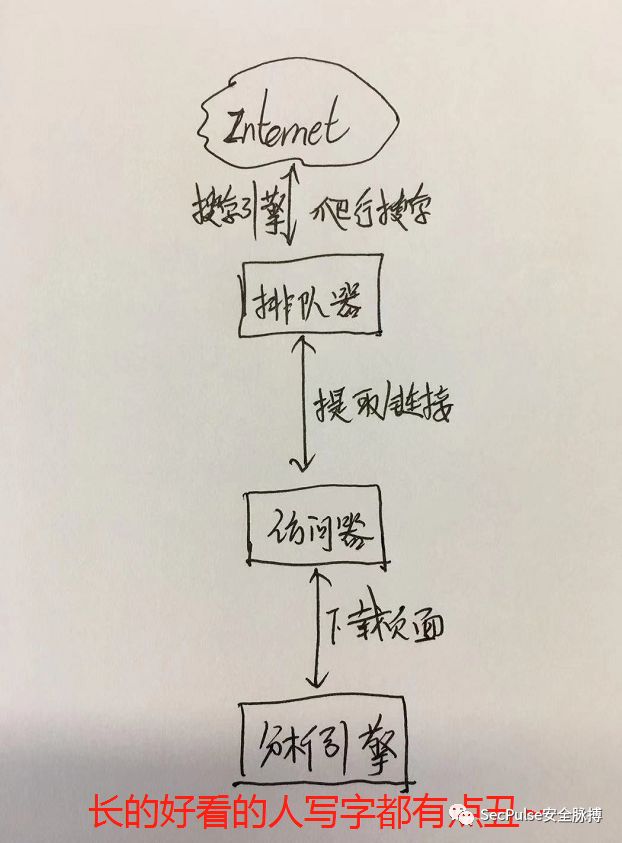 Internet
搜索引擎 爬行搜索
排队器
提取链接
访问器
下载页面
分析引擎
长的好看的人写字都有点丑~
SecPulse安全脉搏